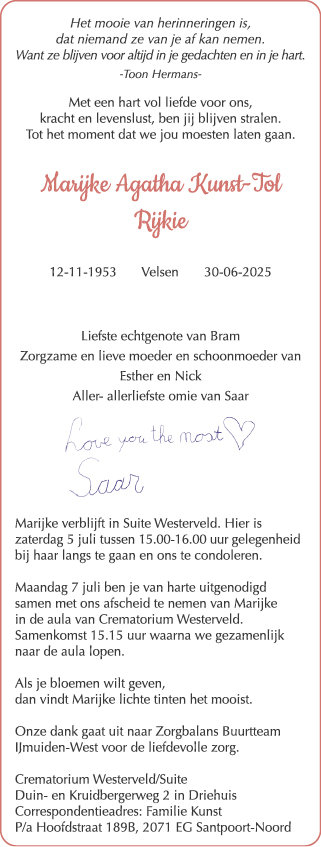 Het mooie van herinneringen is,
dat niemand ze van je af kan nemen.
Want ze blijven voor altijd in je gedachten en in je hart.
-Toon Hermans-
Met een hart vol liefde voor ons,
kracht en levenslust, ben jij blijven stralen.
Tot het moment dat we jou moesten laten gaan.
Marijke Agatha Kunst-Tol
Rijkie
12-11-1953 Velsen 30-06-2025
Liefste echtgenote van Bram
Zorgzame en lieve moeder en schoonmoeder van
Esther en Nick
Aller- allerliefste omie van Saar
Love you the most
Saar
Marijke verblijft in Suite Westerveld. Hier is
zaterdag 5 juli tussen 15.00-16.00 uur gelegenheid
bij haar langs te gaan en ons te condoleren.
Maandag 7 juli ben je van harte uitgenodigd
samen met ons afscheid te nemen van Marijke
in de aula van Crematorium Westerveld.
Samenkomst 15.15 uur waarna we gezamenlijk
naar de aula lopen.
Als je bloemen wilt geven,
dan vindt Marijke lichte tinten het mooist.
Onze dank gaat uit naar Zorgbalans Buurtteam
IJmuiden-West voor de liefdevolle zorg.
Crematorium Westerveld/Suite
Duin- en Kruidbergerweg 2 in Driehuis
Correspondentieadres: Familie Kunst
P/a Hoofdstraat 189B, 2071 EG Santpoort-Noord